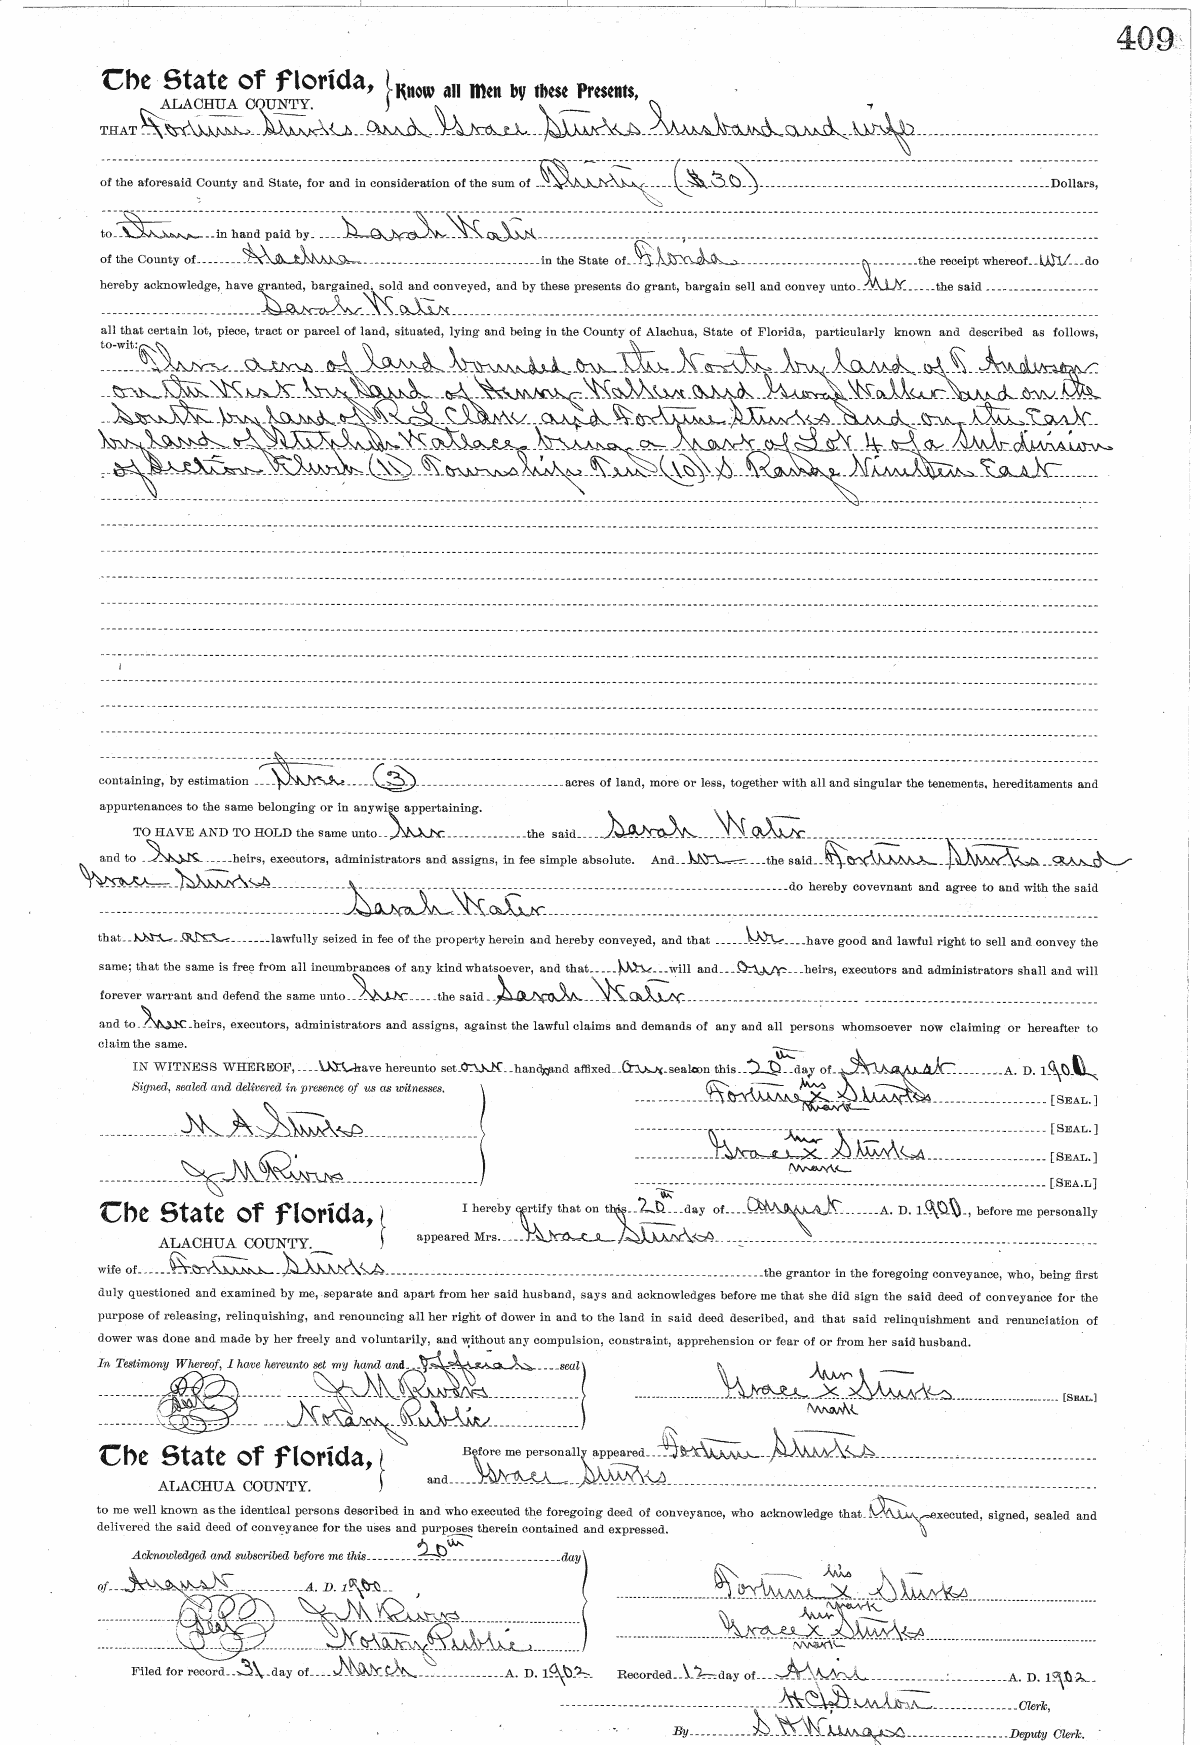 409
The State of Florida, Know all Men by these Presents,
ALACHUA COUNTY.
THAT Fortune Sturks and Grace Sturks husband and wife
of the aforesaid County and State, for and in consideration of the sum of Thirty ($30) Dollars,
to them in hand paid by Sarah Water
of the County of Alachua in the State of Florida the receipt whereof we do
hereby acknowledge, have granted, bargained, sold and conveyed, and by these presents do grant, bargain sell and convey unto her the said
Sarah Water
all that certain lot, piece, tract or parcel of land, situated, lying and being in the County of Alachua, State of Florida, particularly known and described as follows,
to-wit:
Three acres of land bounded on the North by land of T Anderson
on the West by land of Henry Walker and George Walker and on the
South by land of R L Clark and Fortune Sturks and on the East
by land of Stephen Wallace being a part of Lot 4 of a Subdivision
of Section Eleven (11) Township Ten (10) S Range Nineteen East
containing, by estimation three (3) acres of land, more or less, together with all and singular the tenements, hereditaments and
appurtenances to the same belonging or in anywise appertaining.
TO HAVE AND TO HOLD the same unto her the said Sarah Water
and to her heirs, executors, administrators and assigns, in fee simple absolute. And we the said Fortune Sturks and
Grace Sturks do hereby covevnant and agree to and with the said
Sarah Water
that we are lawfully seized in fee of the property herein and hereby conveyed, and that we have good and lawful right to sell and convey the
same; that the same is free from all incumbrances of any kind whatsoever, and that we will and our heirs, executors and administrators shall and will
forever warrant and defend the same unto her the said Sarah Water
and to her heirs, executors, administrators and assigns, against the lawful claims and demands of any and all persons whomsoever now claiming or hereafter to
claim the same.
IN WITNESS WHEREOF, we have hereunto set our hands and affixed our seals on this 20th day of August A. D. 1900
Signed, sealed and delivered in presence of us as witnesses.
Fortune his x mark Sturks [SEAL.]
M A Sturks
[SEAL.]
Grace her x mark Sturks [SEAL.]
J M Rivers
[SEA.L]
The State of Florida,
ALACHUA COUNTY.
I hereby certify that on this 20th day of August A. D. 1900, before me personally
appeared Mrs. Grace Sturks
wife of Fortune Sturks the grantor in the foregoing conveyance, who, being first
duly questioned and examined by me, separate and apart from her said husband, says and acknowledges before me that she did sign the said deed of conveyance for the
purpose of releasing, relinquishing, and renouncing all her right of dower in and to the land in said deed described, and that said relinquishment and renunciation of
dower was done and made by her freely and voluntarily, and without any compulsion, constraint, apprehension or fear of or from her said husband.
In Testimony Whereof, I have hereunto set my hand and official seal
Seal J M Rivers
Grace her x mark Sturks [SEAL.]
Notary Public
The State of Florida,
ALACHUA COUNTY.
Before me personally appeared Fortune Sturks
and Grace Sturks
to me well known as the identical persons described in and who executed the foregoing deed of conveyance, who acknowledge that they executed, signed, sealed and
delivered the said deed of conveyance for the uses and purposes therein contained and expressed.
Acknowledged and subscribed before me this 20th day
of August A. D. 1900
Fortune his x mark Sturks
Seal J M Rivers
Grace her x mark Sturks
Notary Public
Filed for record 31 day of March A. D. 1902 Recorded 12 day of April A. D. 1902
H C Denton Clerk,
By S H Wienges Deputy Clerk.